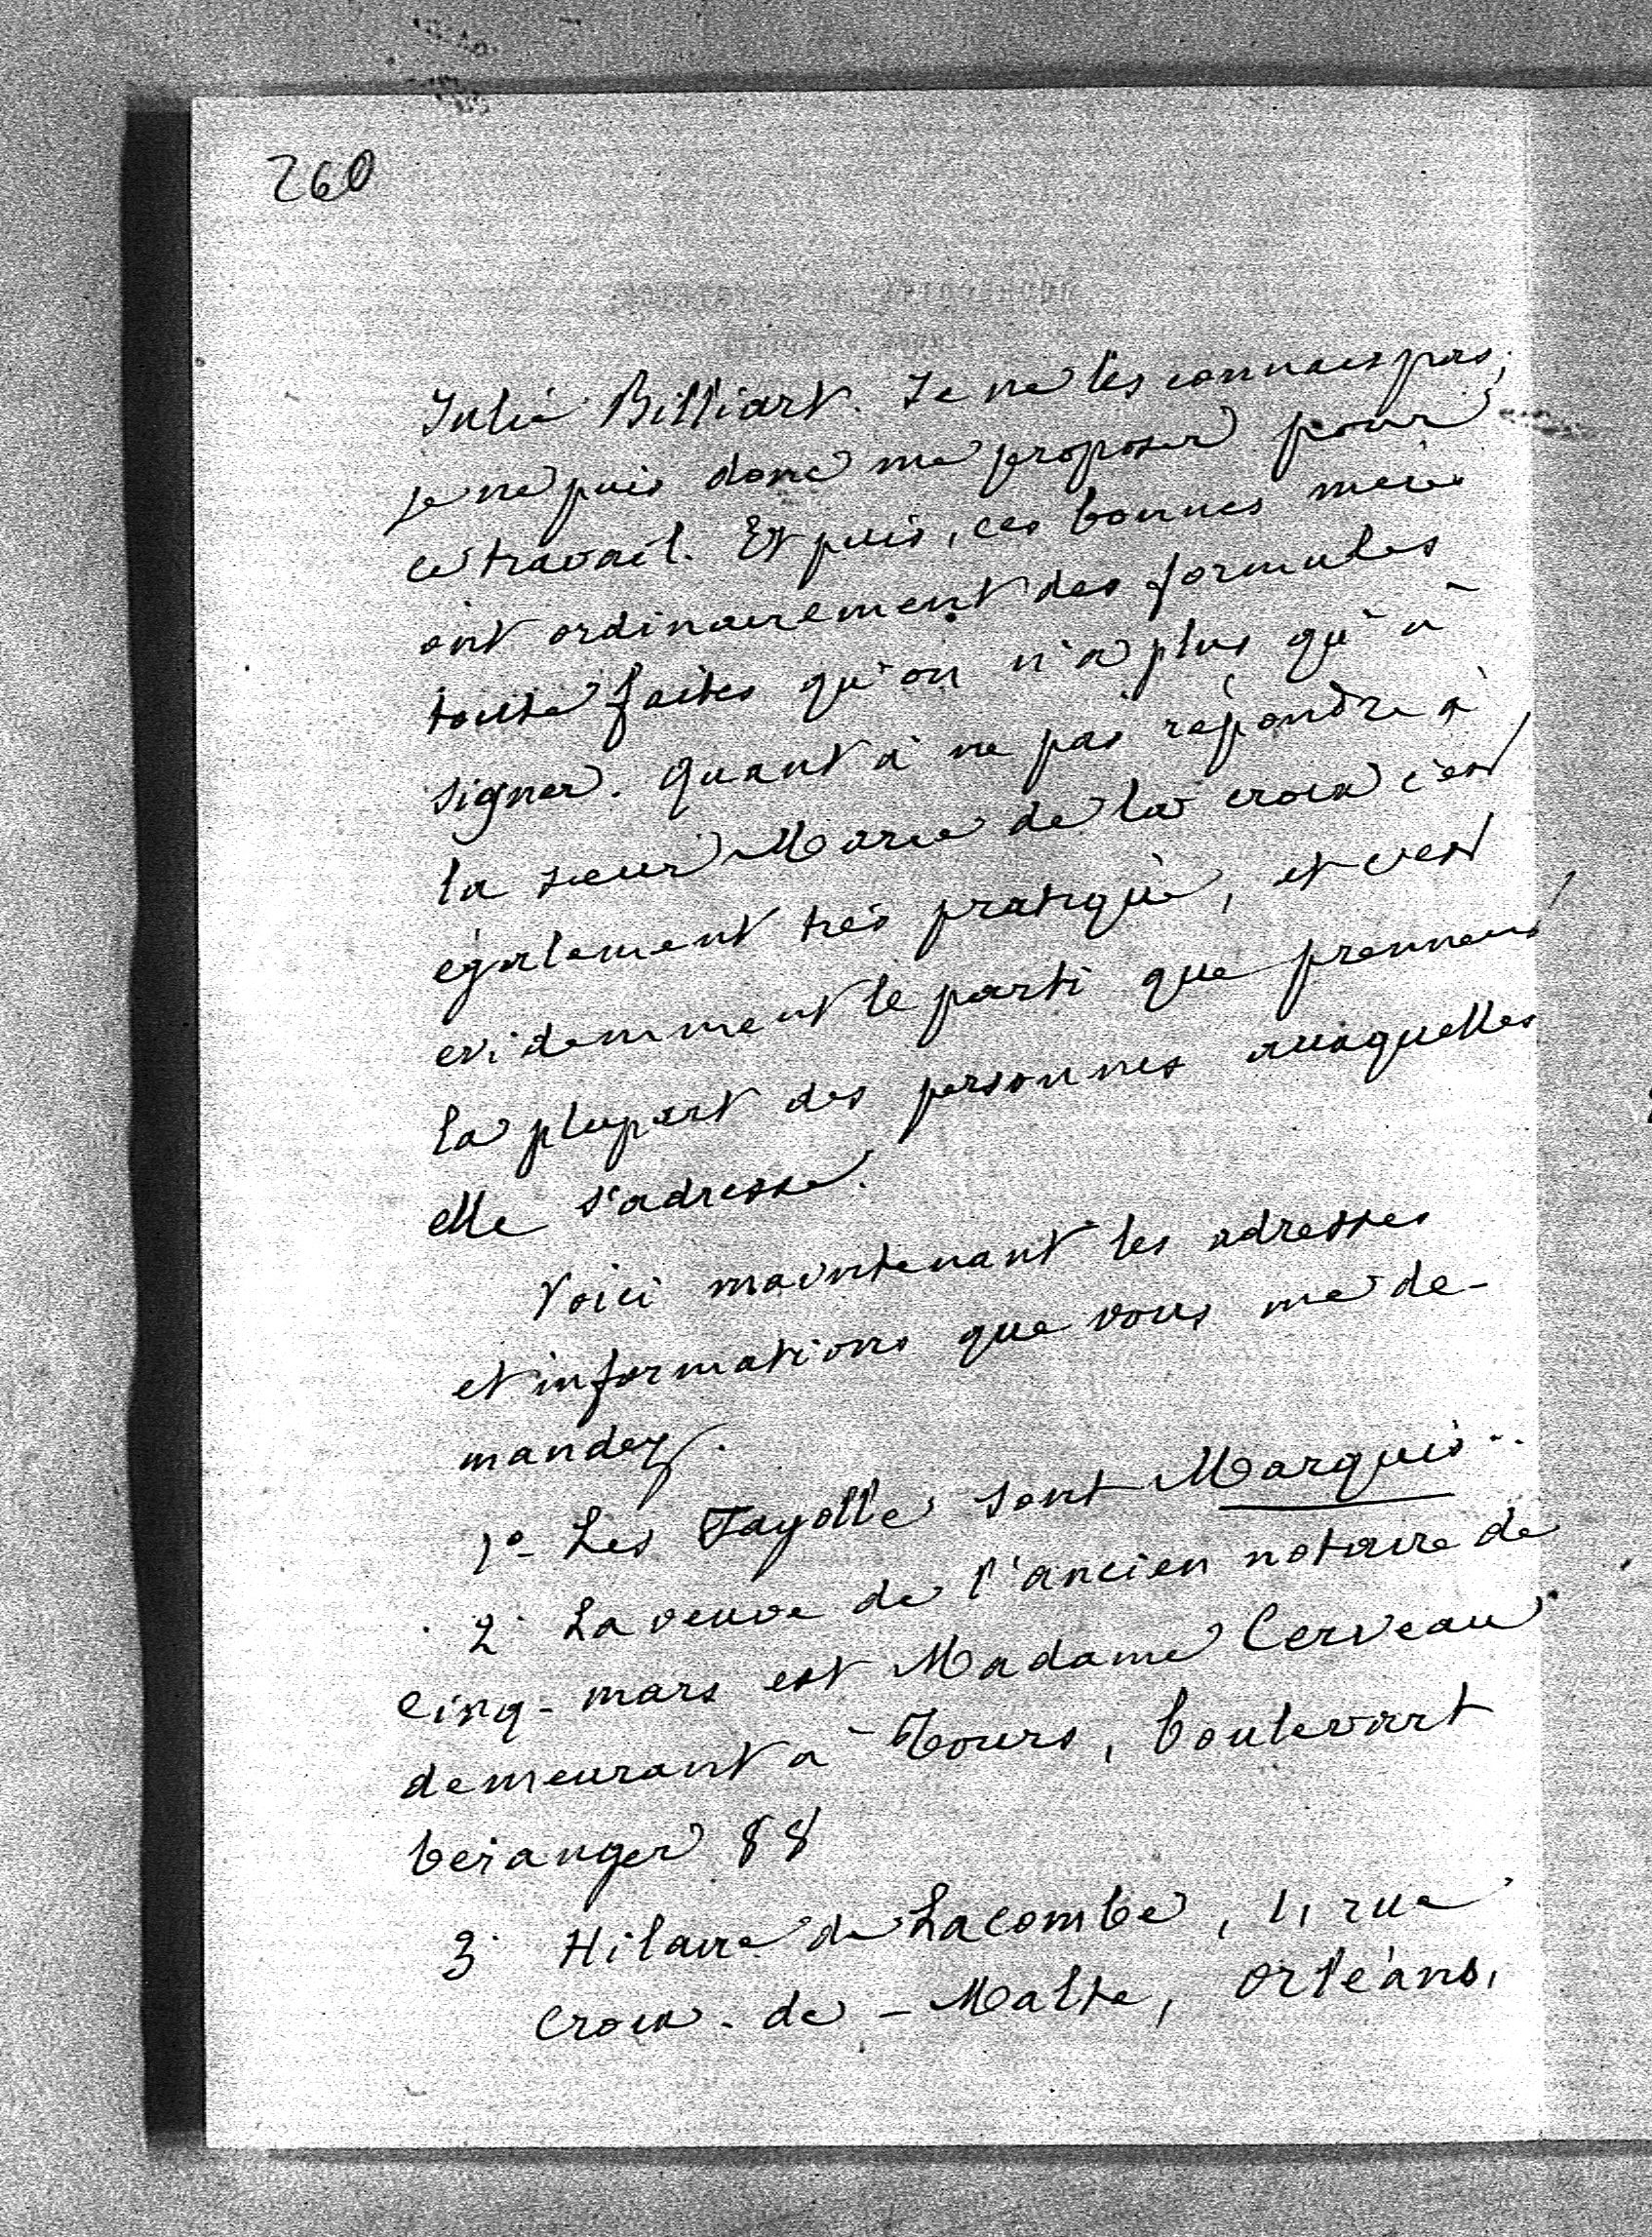 260
Julie Billiart. Je ne les connais pas,
je ne puis donc me proposer pour
ce travail. Et puis, ces bonnes mères
ont ordinairement des formules
toute faites qu'on n'a plus qu'à
signer. Quant à ne pas répondre à
la sœur Marie de la croix c'est
également très pratique, et c'est
evidemment le parti que prennent
la plupart des personnes auxquelles
elle s'adresse.
Voici maintenant les adresses
et informations que vous me de-
mandez.
1º Les Fayolle sont Marquis..
2º La veuve de l'ancien notaire de
Cinq-mars est Madame Cerveau
demeurant à Tours, boulevart
beranger 88
3º Hilaire de Lacombe, 1, rue
Croix-de-Malte, Orléans,